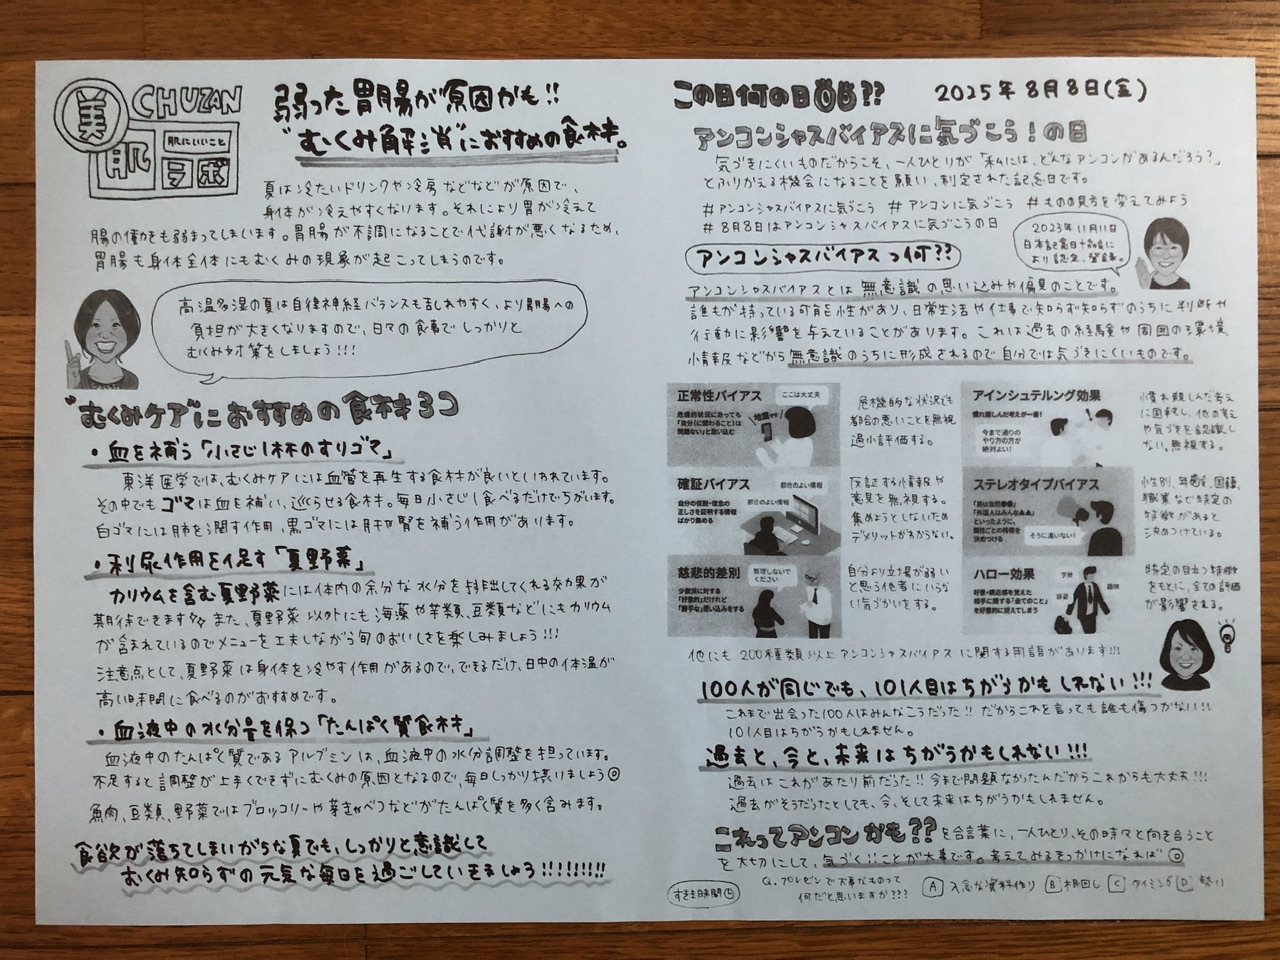 美
CHUZAN
肌
肌にいいこと
ラボ
弱った胃腸が原因かも!!
"むくみ解消"におすすめの食材。
夏は冷たいドリンクや冷房などなどが原因で、
身体が冷えやすくなります。それにより胃が冷えて
腸の働きも弱まってしまいます。胃腸が不調になることで代謝が悪くなるため、
胃腸も身体全体にもむくみの現象が起こってしまうのです。
高温多湿の夏は自律神経バランスも乱れやすく、より胃腸への
負担が大きくなりますので、日々の食事でしっかりと
むくみ対策をしましょう!!!
"むくみケア"におすすめの食材3つ
・血を補う「小さじ1杯のすりゴマ」
東洋医学では、むくみケアには血管を再生する食材が良いといわれています。
その中でもゴマは血を補い、巡らせる食材。毎日小さじ1食べるだけでちがいます。
白ゴマには肺を潤す作用、黒ゴマには肝腎を補う作用があります。
・利尿作用を促す「夏野菜」
カリウムを含む夏野菜には体内の余分な水分を排出してくれる効果が
期待できます また、夏野菜以外にも海藻や芋類、豆類などにもカリウム
が含まれているのでメニューを工夫しながら旬のおいしさを楽しみましょう!!!
注意点として、夏野菜は身体を冷やす作用があるので、できるだけ、日中の体温が
高い時間に食べるのがおすすめです。
・血液中の水分量を保つ「たんぱく質食材」
血液中のたんぱく質であるアルブミンは、血液中の水分調整を担っています。
不足すると調整が上手くできずにむくみの原因となるので、毎日しっかり摂りましょう◎
魚肉、豆類、野菜ではブロッコリーや芽キャベツなどがたんぱく質を多く含みます。
食欲が落ちてしまいがちな夏でも、しっかりと意識して
むくみ知らずの元気な毎日を過ごしていきましょう!!!!!!!!!
この日何の日??
2025年8月8日(金)
アンコンシャスバイアスに気づこう!の日
気づきにくいものだからこそ、一人ひとりが「私には、どんなアンコンがあるんだろう?」
とふりかえる機会になることを願い、制定された記念日です。
#アンコンシャスバイアスに気づこう #アンコンに気づこう #ものの見方を変えてみよう
#8月8日はアンコンシャスバイアスに気づこうの日
2023年11月11日
日本記念日協会
により認定、登録。
アンコンシャスバイアスって何??
アンコンシャスバイアスとは無意識の思い込みや偏見のことです。
誰もが持っている可能性があり、日常生活や仕事で知らず知らずのうちに判断や
行動に影響を与えていることがあります。これは過去の経験や周囲の環境、
情報などから無意識のうちに形成されるので自分では気づきにくいものです。
正常性バイアス
ここは大丈夫
危機的状況にあっても
「自分(に関わること)は
問題ない」と思い込む
地震です
危機的な状況でも
都合の悪いことを無視
過小評価する。
アインシュテルング効果
慣れ親しんだ考えが一番!
今まで通りの
やり方の方が
絶対よい!
慣れ親しんだ考え
に固執し、他の考え
や気づきを認識し
ない、無視する。
確証バイアス
都合の悪い情報
自分の仮説・信念の
正しさを証明する情報
ばかり集める
都合のよい情報
反証する情報や
意見を無視する。
集めようとしないため
デメリットがわからない。
ステレオタイプバイアス
「男は当然●●」
「外国人はみんな▲▲」
といったように、
属性ごとの特徴を
決めつける
そうに違いない!
性別、年齢、国籍、
職業など特定の
特徴があると
決めつけている。
慈悲的差別
無理しないで
ください
少数派に対する
「好意的」だけど
「勝手な」思い込みをする
自分より立場が弱い
と思う他者にいらな
い気づかいをする。
ハロー効果
学歴
容姿
趣味
好意・親近感を覚えた
相手に関する「全てのこと」
を好意的に捉えてしまう
特定の目立つ特徴
をもとに、全ての評価
が影響される。
他にも200種類以上アンコンシャスバイアスに関する用語があります!!!
100人が同じでも、101人目はちがうかもしれない!!!
これまで出会った100人はみんなこうだった!! だからこれを言っても誰も傷つかない!!
101人目はちがうかもしれません。
過去と、今と、未来はちがうかもしれない!!!
過去はこれがあたり前だった!! 今まで問題なかったんだからこれからも大丈夫!!!
過去がそうだったとしても、今、そして未来はちがうかもしれません。
これってアンコンかも??を合言葉に、一人ひとり、その時々と向き合うこと
を大切にして、気づく!!ことが大事です。考えてみるきっかけになれば◎
すきま時間
Q. プレゼンで大事なものって
何だと思いますか???
A 入念な資料作り B 根回し C タイミング D 勢い